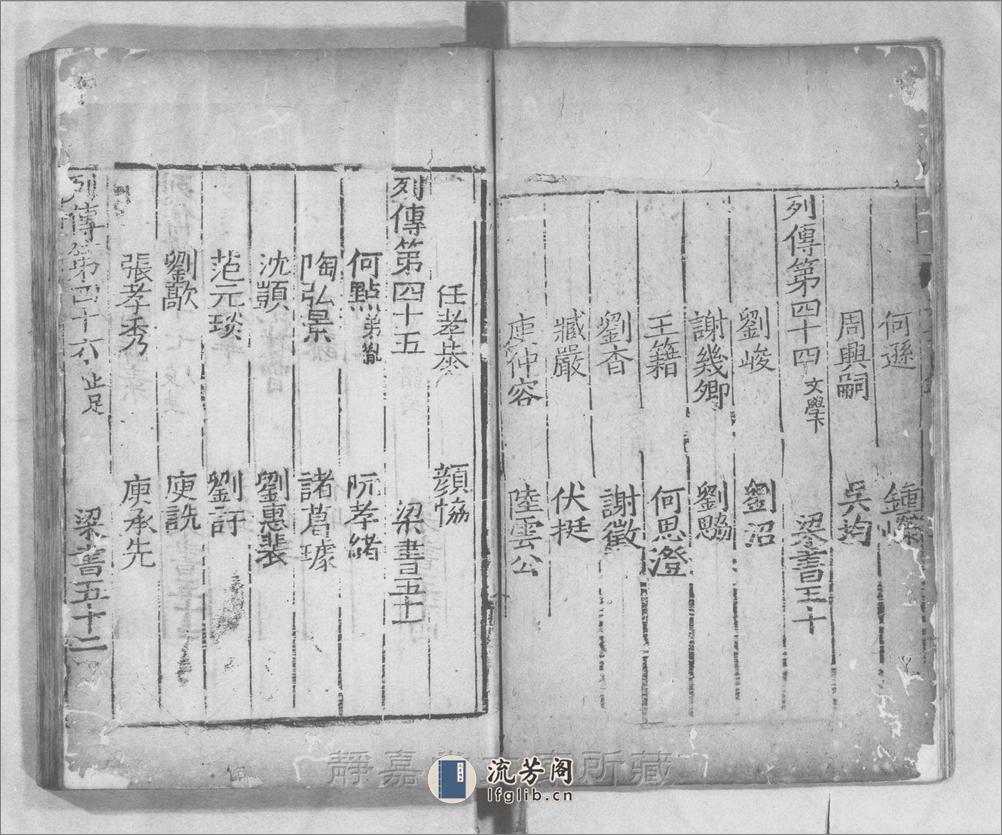 何遜　鍾嶸
周興嗣　吳均
列傳第四十四 文學下　梁書五十
劉峻　劉沼
謝幾卿　劉勰
王籍　何思澄
劉杳　謝徵
臧嚴　伏挺
庾仲容　陸雲公
任孝恭　顔協
列傳第四十五　梁書五十一
何點 弟胤　阮孝緒
陶弘景　諸葛璩
沈顗　劉惠斐
范元琰　劉訏
劉歊　庾詵
張孝秀　庾承先
列傳第四十六 止足　梁書五十二
靜嘉 所藏
流芳阁
lfglib.cn